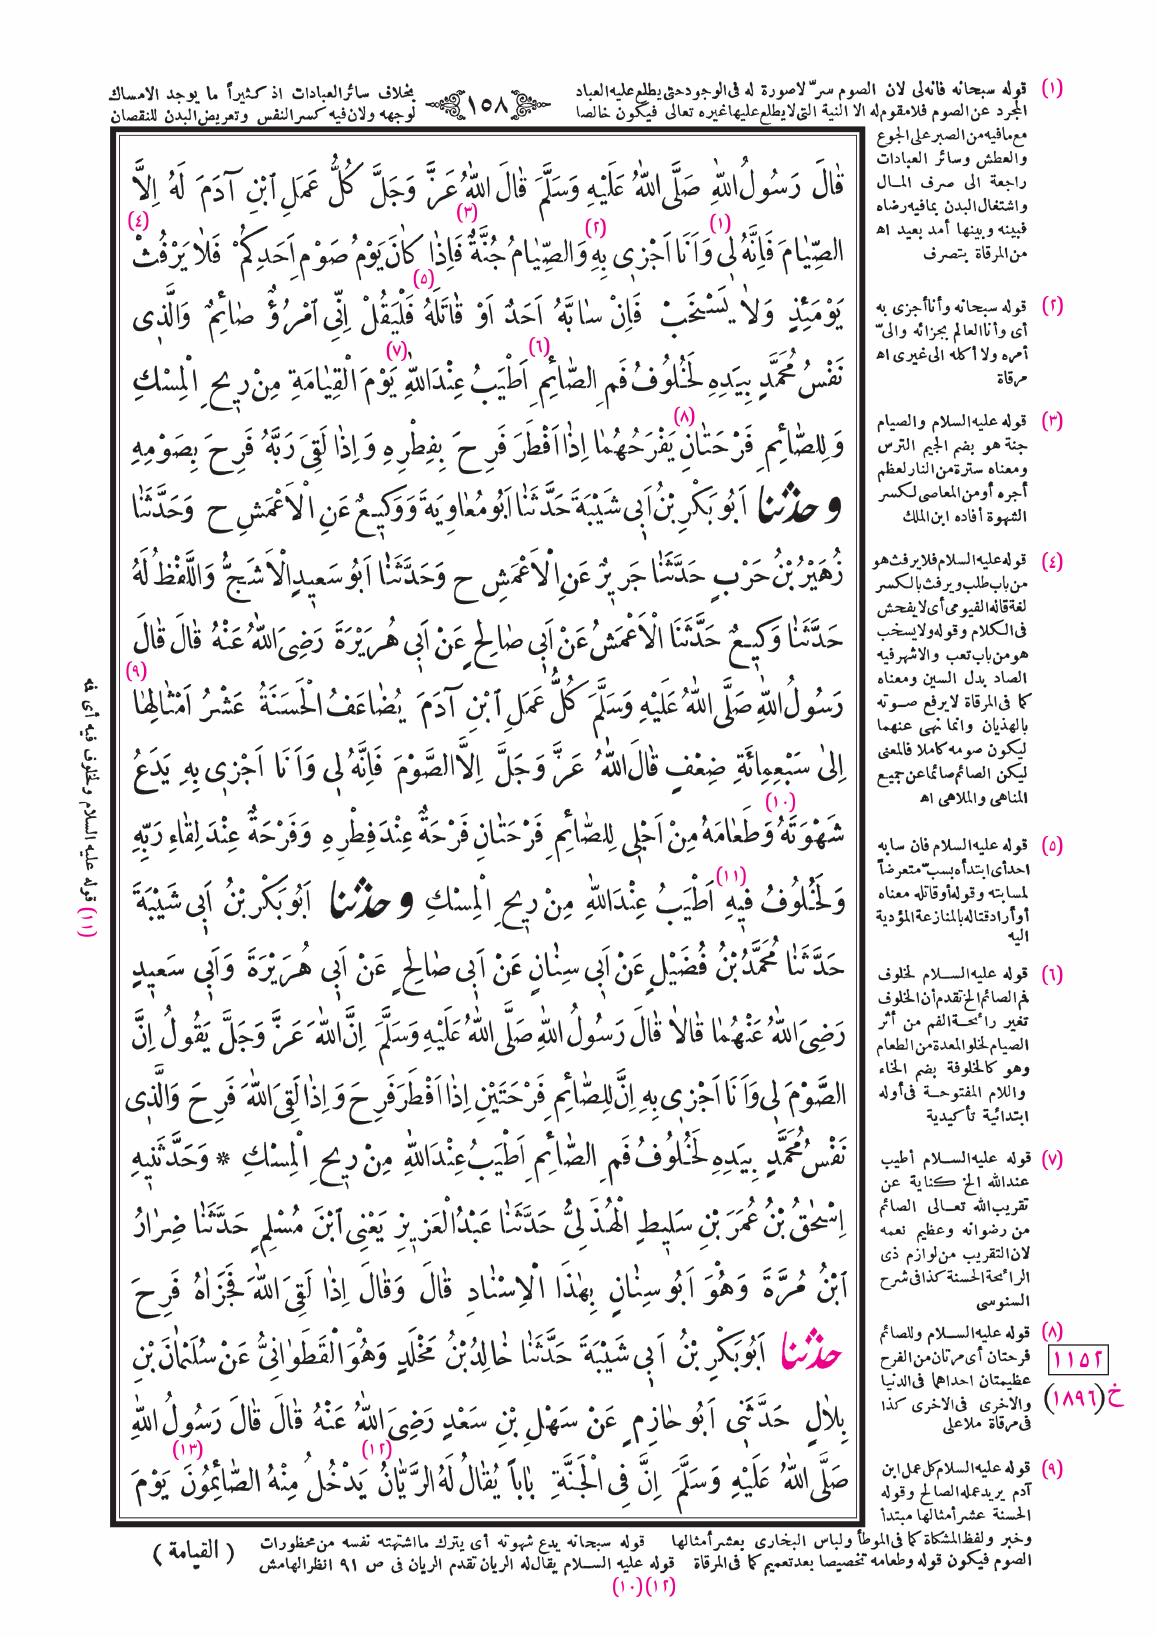 (١) قوله سبحانه فانه لى لان الصوم سرّ لا صورة له فى الوجود حتى يطلع عليه العباد
بخلاف سائر العبادات اذ كثيراً ما يوجد الامساك
١٥٨
المجرد عن الصوم فلا مقوم له الا النية التى لا يطلع عليها غيره تعالى فيكون خالصا
لوجهه ولان فيه كسر النفس وتعريض البدن للنقصان
مع ما فيه من الصبر على الجوع
والعطش وسائر العبادات
راجعة الى صرف المـال
واشتغال البدن بما فيه رضاه
فبينه وبينها أمد بعيد اه
من المرقاة بتصرف
(٢) قوله سبحانه وأنا أجزى به
أى وأنا العالم بجزائه والىّ
أمره ولا أكله الى غيرى اه
مرقاة
(٣) قوله عليه السلام والصيام
جنة هو بضم الجيم الترس
ومعناه سترة من النار لعظم
أجره أو من المعاصى لكسر
الشهوة أفاده ابن الملك
(٤) قوله عليه السلام فلا يرفث هو
من باب طلب ويرفث بالكسر
لغة قاله الفيومى أى لا يفحش
فى الكلام وقوله ولا يسخب
هو من باب تعب والاشهر فيه
الصاد بدل السين ومعناه
كما فى المرقاة لا يرفع صـوته
بالهذيان وانما نهى عنهما
ليكون صومه كاملا فالمعنى
ليكن الصائم صائما عن جميع
المناهى والملاهى اه
(٥) قوله عليه السلام فان سابه
احد أى ابتدأه بسبّ متعرضاً
لمسابته وقوله أو قاتله معناه
أو أراد قتاله بالمنازعة المؤدية
اليه
(٦) قوله عليه السـلام لخلوف
فم الصائم الخ تقدم أن الخلوف
تغير رائحـة الفم من أثر
الصيام لخلو المعدة من الطعام
وهو كالخلوفة بضم الخاء
واللام المفتوحـة فى أوله
ابتدائية تأكيدية
(٧) قوله عليه السـلام أطيب
عند الله الخ كناية عن
تقريب الله تعـالى الصائم
من رضوانه وعظيم نعمه
لان التقريب من لوازم ذى
الرائحة الحسنة كذا فى شرح
السنوسى
(٨) قوله عليه السـلام وللصائم
فرحتان أى مرتان من الفرح
عظيمتان احداهما فى الدنيا
والاخرى فى الاخرى كذا
فى مرقاة ملا على
١١٥٢
خ (١٨٩٦)
(٩) قوله عليه السلام كل عمل ابن
آدم يريد عمله الصالح وقوله
الحسنة عشر أمثالها مبتدأ
قَالَ رَسُولُ اللهِ صَلَّى اللهُ عَلَيْهِ وَسَلَّمَ قَالَ اللهُ عَزَّ وَجَلَّ كُلُّ عَمَلِ ابْنِ آدَمَ لَهُ اِلَّا
الصِّيَامَ فَاِنَّهُ لِى (١) وَاَنَا اَجْزِى بِهِ (٢) وَالصِّيَامُ جُنَّةٌ (٣) فَاِذَا كَانَ يَوْمُ صَوْمِ اَحَدِكُمْ فَلَا يَرْفُثْ (٤)
يَوْمَئِذٍ وَلَا يَسْخَبْ فَاِنْ سَابَّهُ اَحَدٌ اَوْ قَاتَلَهُ (٥) فَلْيَقُلْ اِنِّى امْرُؤٌ صَائِمٌ وَالَّذِى
نَفْسُ مُحَمَّدٍ بِيَدِهِ لَخُلُوفُ فَمِ الصَّائِمِ (٦) اَطْيَبُ عِنْدَ اللهِ (٧) يَوْمَ الْقِيَامَةِ مِنْ رِيحِ الْمِسْكِ
وَلِلصَّائِمِ فَرْحَتَانِ (٨) يَفْرَحُهُمَا اِذَا اَفْطَرَ فَرِحَ بِفِطْرِهِ وَاِذَا لَقِىَ رَبَّهُ فَرِحَ بِصَوْمِهِ
وحدثنا اَبُو بَكْرِ بْنُ اَبِى شَيْبَةَ حَدَّثَنَا اَبُو مُعَاوِيَةَ وَوَكِيعٌ عَنِ الْاَعْمَشِ ح وَحَدَّثَنَا
زُهَيْرُ بْنُ حَرْبٍ حَدَّثَنَا جَرِيرٌ عَنِ الْاَعْمَشِ ح وَحَدَّثَنَا اَبُو سَعِيدٍ الْاَشَجُّ وَاللَّفْظُ لَهُ
حَدَّثَنَا وَكِيعٌ حَدَّثَنَا الْاَعْمَشُ عَنْ اَبِى صَالِحٍ عَنْ اَبِى هُرَيْرَةَ رَضِىَ اللهُ عَنْهُ قَالَ قَالَ
رَسُولُ اللهِ صَلَّى اللهُ عَلَيْهِ وَسَلَّمَ كُلُّ عَمَلِ ابْنِ آدَمَ يُضَاعَفُ الْحَسَنَةُ عَشْرُ اَمْثَالِهَا (٩)
اِلَى سَبْعِمِائَةِ ضِعْفٍ قَالَ اللهُ عَزَّ وَجَلَّ اِلَّا الصَّوْمَ فَاِنَّهُ لِى وَاَنَا اَجْزِى بِهِ يَدَعُ
شَهْوَتَهُ وَطَعَامَهُ (١٠) مِنْ اَجْلِى لِلصَّائِمِ فَرْحَتَانِ فَرْحَةٌ عِنْدَ فِطْرِهِ وَفَرْحَةٌ عِنْدَ لِقَاءِ رَبِّهِ
وَلَخُلُوفُ فِيهِ (١١) اَطْيَبُ عِنْدَ اللهِ مِنْ رِيحِ الْمِسْكِ وحدثنا اَبُو بَكْرِ بْنُ اَبِى شَيْبَةَ
حَدَّثَنَا مُحَمَّدُ بْنُ فُضَيْلٍ عَنْ اَبِى سِنَانٍ عَنْ اَبِى صَالِحٍ عَنْ اَبِى هُرَيْرَةَ وَاَبِى سَعِيدٍ
رَضِىَ اللهُ عَنْهُمَا قَالَا قَالَ رَسُولُ اللهِ صَلَّى اللهُ عَلَيْهِ وَسَلَّمَ اِنَّ اللهَ عَزَّ وَجَلَّ يَقُولُ اِنَّ
الصَّوْمَ لِى وَاَنَا اَجْزِى بِهِ اِنَّ لِلصَّائِمِ فَرْحَتَيْنِ اِذَا اَفْطَرَ فَرِحَ وَاِذَا لَقِىَ اللهَ فَرِحَ وَالَّذِى
نَفْسُ مُحَمَّدٍ بِيَدِهِ لَخُلُوفُ فَمِ الصَّائِمِ اَطْيَبُ عِنْدَ اللهِ مِنْ رِيحِ الْمِسْكِ * وَحَدَّثَنِيهِ
اِسْحٰقُ بْنُ عُمَرَ بْنِ سَلِيطٍ الْهُذَلِىُّ حَدَّثَنَا عَبْدُ الْعَزِيزِ يَعْنِى ابْنَ مُسْلِمٍ حَدَّثَنَا ضِرَارُ
ابْنُ مُرَّةَ وَهُوَ اَبُو سِنَانٍ بِهٰذَا الْاِسْنَادِ قَالَ وَقَالَ اِذَا لَقِىَ اللهَ فَجَزَاهُ فَرِحَ
حدثنا اَبُو بَكْرِ بْنُ اَبِى شَيْبَةَ حَدَّثَنَا خَالِدُ بْنُ مَخْلَدٍ وَهُوَ الْقَطَوَانِىُّ عَنْ سُلَيْمَانَ بْنِ
بِلَالٍ حَدَّثَنِى اَبُو حَازِمٍ عَنْ سَهْلِ بْنِ سَعْدٍ رَضِىَ اللهُ عَنْهُ قَالَ قَالَ رَسُولُ اللهِ
صَلَّى اللهُ عَلَيْهِ وَسَلَّمَ اِنَّ فِى الْجَنَّةِ بَاباً يُقَالُ لَهُ الرَّيَّانُ (١٢) يَدْخُلُ مِنْهُ الصَّائِمُونَ (١٣) يَوْمَ
(١١) قوله عليه السلام ولخلوف فيه أى فمه
وخبر ولفظ المشكاة كما فى الموطأ ولباس البخارى بعشر أمثالها قوله سبحانه يدع شهوته أى يترك ما اشتهته نفسه من محظورات
الصوم فيكون قوله وطعامه تخصيصا بعد تعميم كما فى المرقاة قوله عليه السـلام يقال له الريان تقدم الريان فى ص ٩١ انظر الهامش
( القيامة )
(١٠) (١٢)